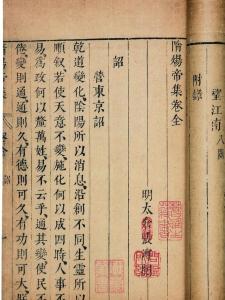 隋煬帝集卷全
明太倉張溥閱
詔
營東京詔
乾道變化陰陽所以消息沿創不同生靈所以
順叙若使天意不變施化何以成四時人事不
易爲政何以釐萬姓易不云乎通其變使民不
倦變則通通則久有德則可久有功則可大
附錄
望江南八闋